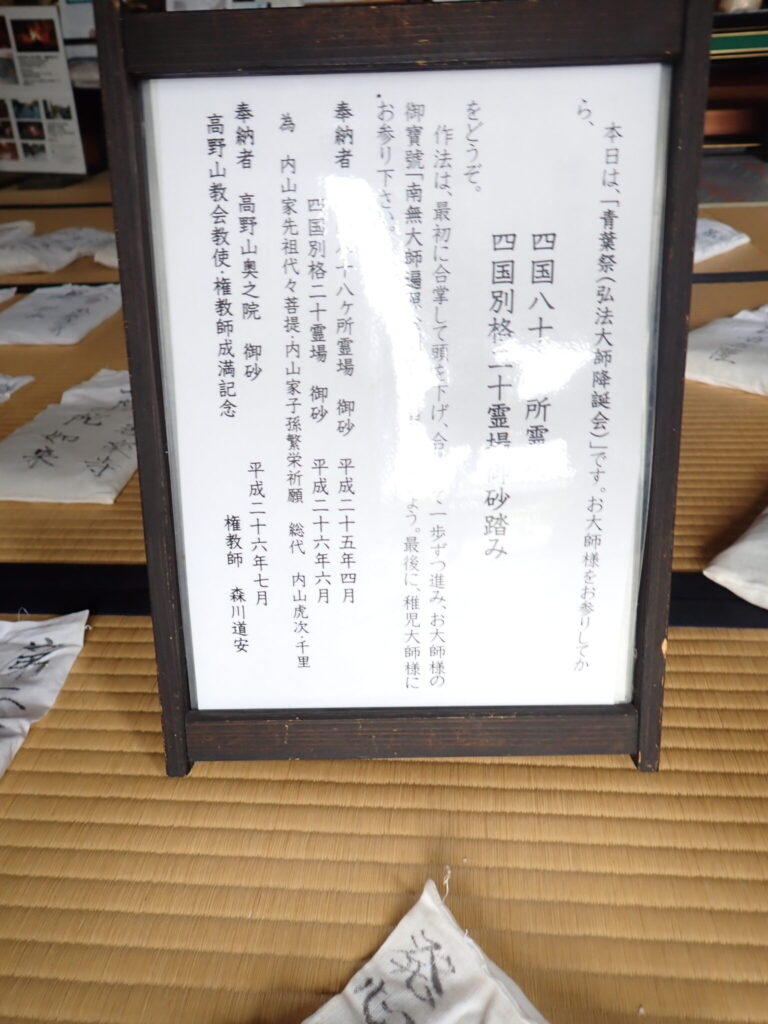 本日は、「青葉祭（弘法大師降誕会）」です。お大師様をお参りしてか
ら、
四国八十 所霊
四国別格二十霊場御砂踏み
をどうぞ。
作法は、最初に合掌して頭を下げ、合 て一歩ずつ進み、お大師様の
御寶號「南無大師遍照 ょう。最後に、稚児大師様に
お参り下さい。
奉納者 八十八ケ所霊場 御砂 平成二十五年四月
四国別格二十霊場 御砂 平成二十六年六月
為 内山家先祖代々菩提・内山家子孫繁栄祈願 総代 内山虎次・千里
奉納者 高野山奥之院 御砂 平成二十六年七月
高野山教会教使・権教師成満記念 権教師 森川道安